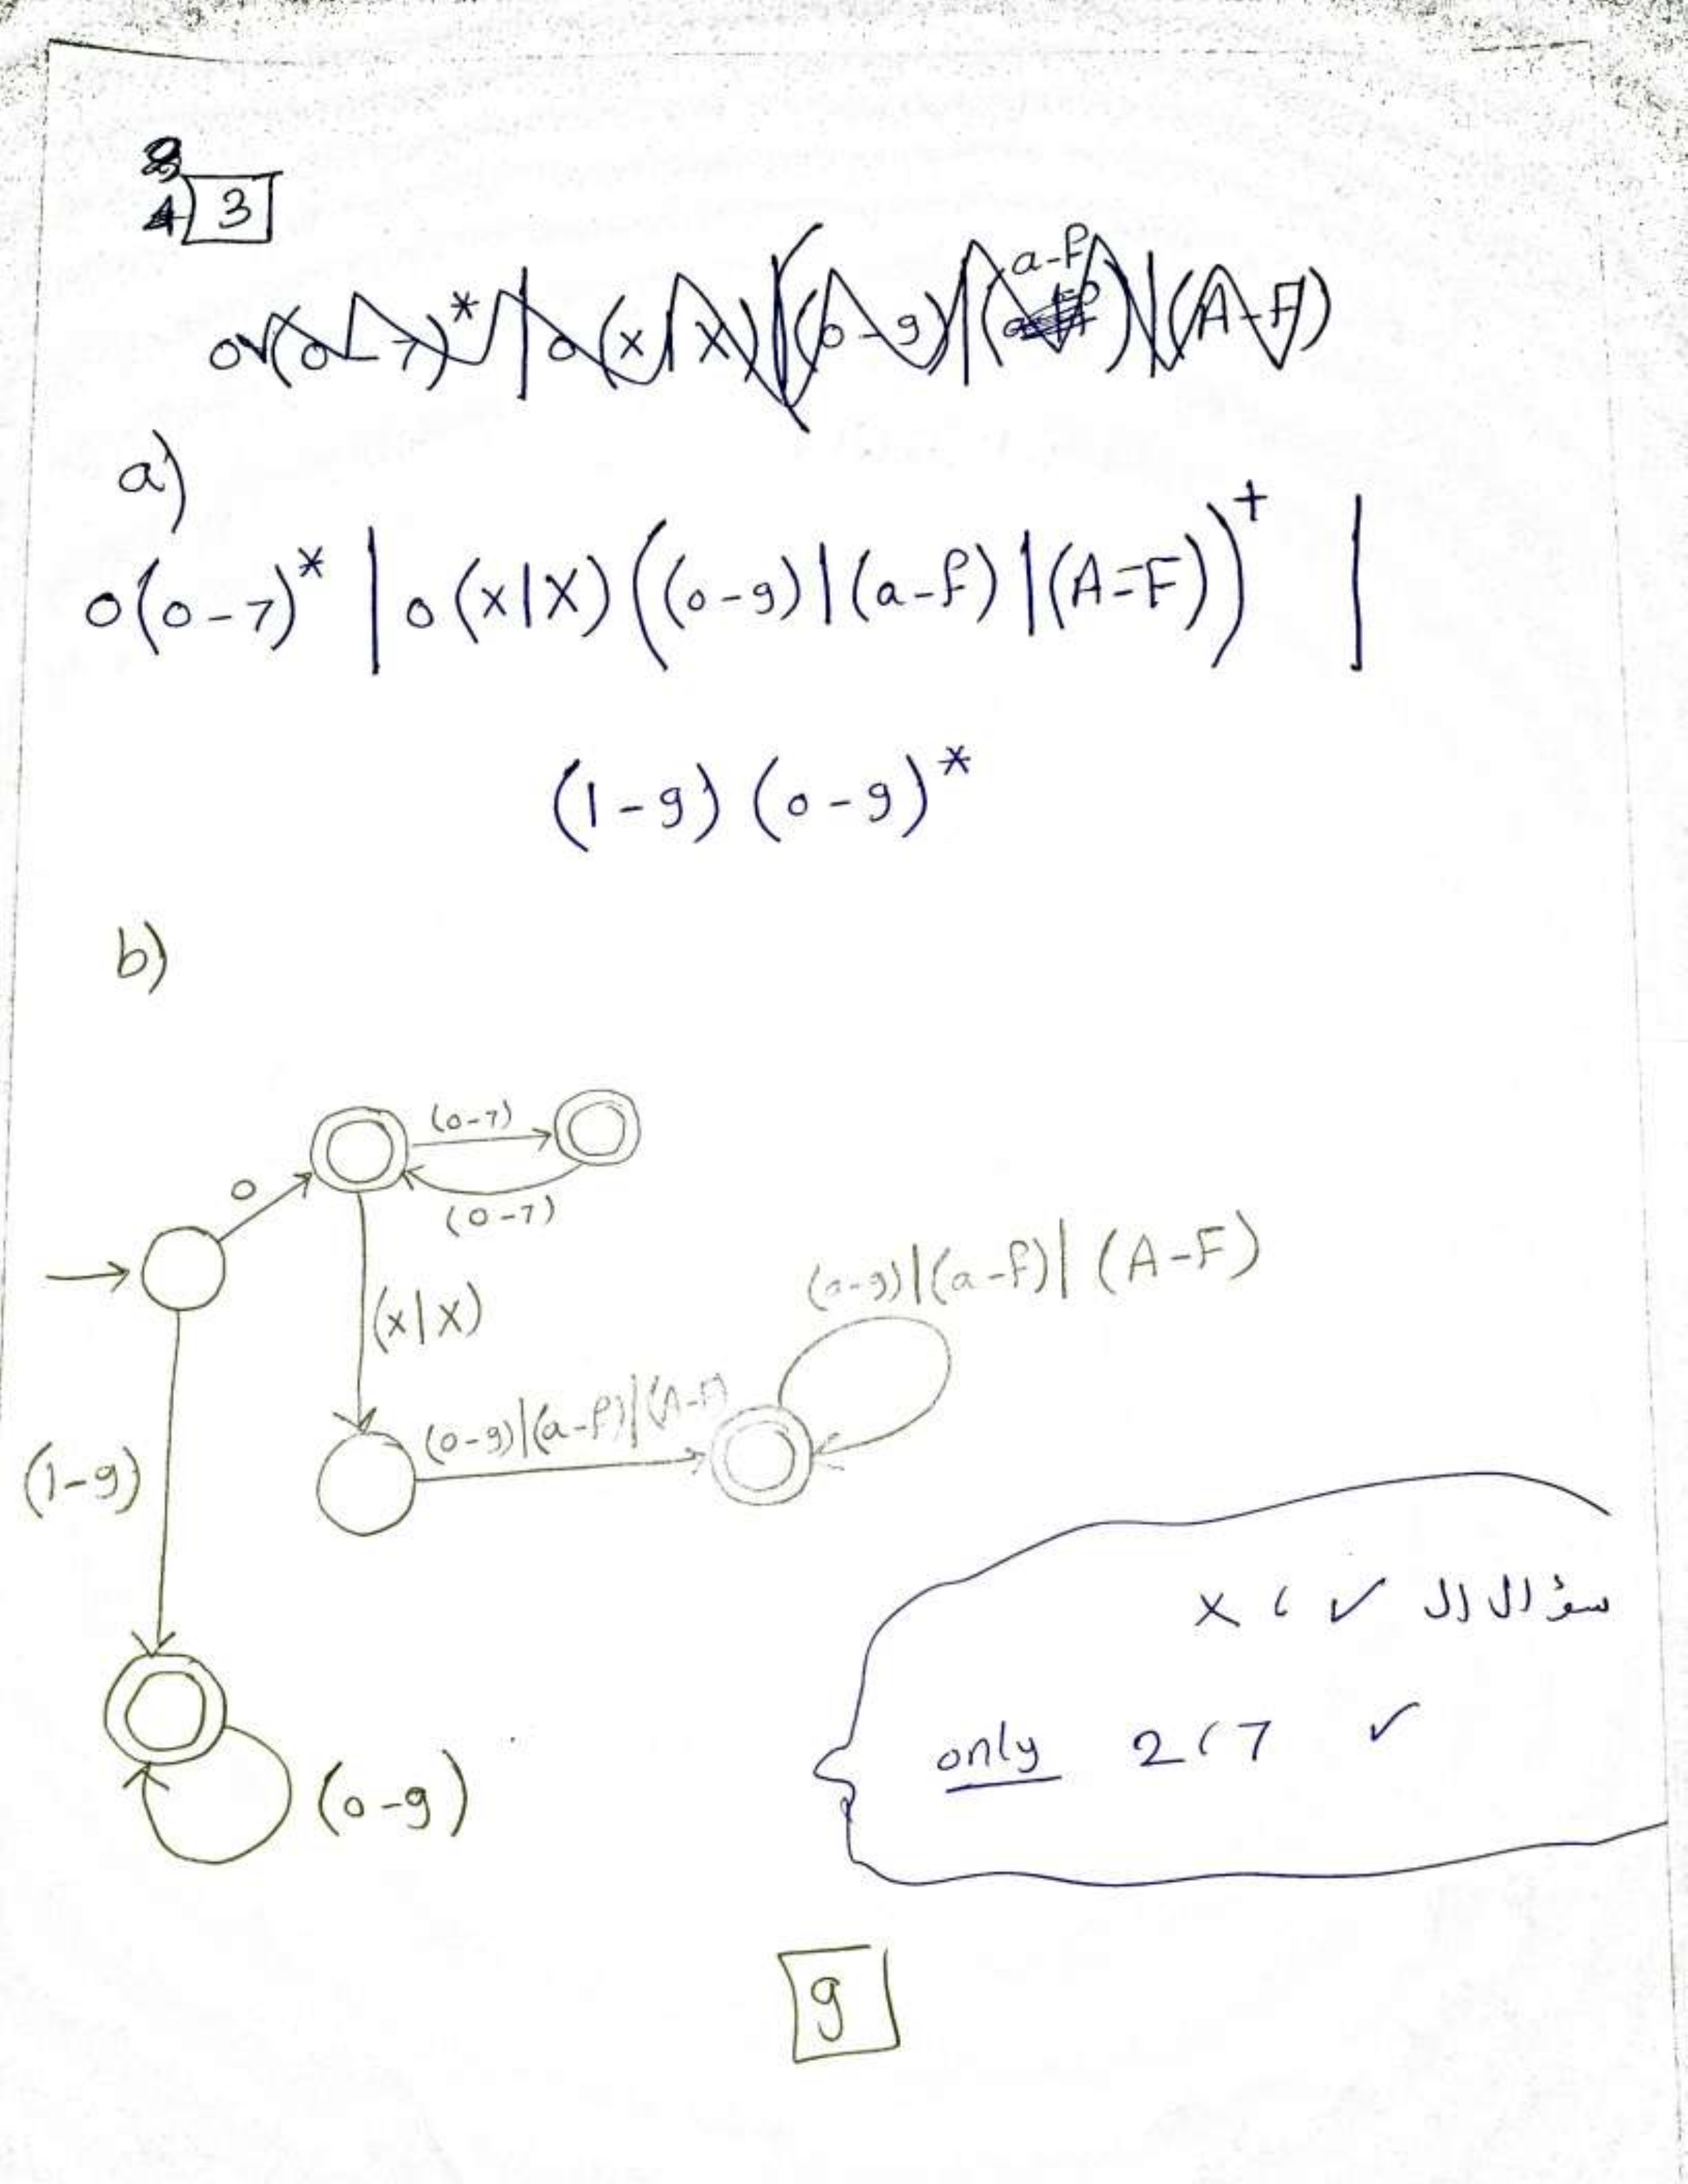 4) 3
0(0-7)* | 0(x|X) ((0-9)|(a-f)|(A-F))
a)
0(0-7)* | 0(x|X) ((0-9)|(a-f)|(A-F))⁺ |
(1-9) (0-9)*
b)
(0-7)
0
(0-7)
(0-9)|(a-f)|(A-F)
(x|X)
(0-9)|(a-f)|(A-F)
(1-9)
سؤال ال ✓ ، ×
only 2 ، 7 ✓
(0-9)
9